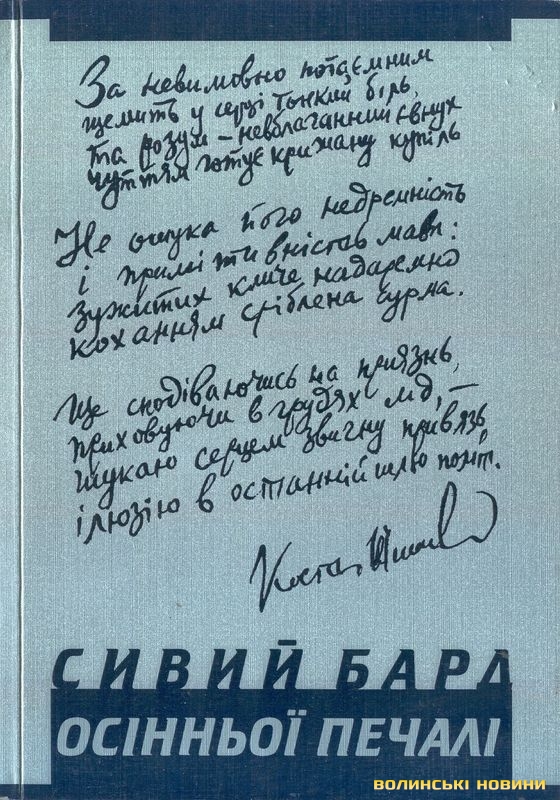 За невимовно потаємним
щемить у серці тонкий біль,
та розум – невблаганний євнух
чуттям готує крижану купіль
Не ошука його недремність
і примітивність мавп:
зужитих кличе надаремно
коханням сріблена сурма.
Ще сподіваючись на приязнь,
приховуючи в грудях лід, –
шукаю серцем звичну прив'язь,
ілюзію в останній шлю політ.
СИВИЙ БАРД
ОСІННЬОЇ ПЕЧАЛІ
ВОЛИНСЬКІ НОВИНИ